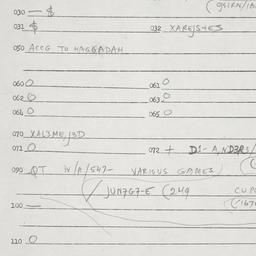 030 — $
031 $ 032 XAREJS+ES
050 ACCG TO HAGGADAH
060 0 061 0
062 0 063 0
064 0 065 0
070 XAL3ME,J3D
071 0 072 + D1-A,ND3R3/
090 QT W/A/547- VARIOUS GAMES
JUM7G7-E (249 CUP
100 — (167
110 0